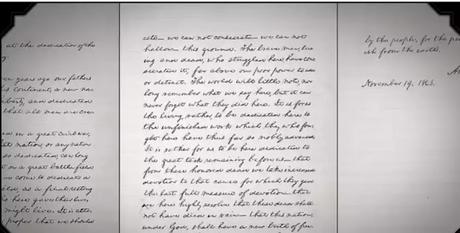 at the dedication of the
en years ago our fathers
is continent, a new na-
liberty, and dedicated
that all men are cre-
ed in a great civil war,
at nation, or any nation
so dedicated, can long
t on a great battle field
e come to dedicate a
eld, as a final resting
o here gave their lives
might live. It is alto-
proper that we should
cate— we can not consecrate— we can not
hallow— this ground. The brave men, liv-
ing and dead, who struggled here have con-
secrated it, far above our poor power to add
or detract. The world will little note, nor
long remember what we say here, but it can
never forget what they did here. It is for us
the living, rather, to be dedicated here to
the unfinished work which they who fou-
ght here have thus far so nobly advanced.
It is rather for us to be here dedicated to
the great task remaining before us— that
from these honored dead we take increased
devotion to that cause for which they gave
the last full measure of devotion— that
we here highly resolve that these dead shall
not have died in vain— that this nation,
under God, shall have a new birth of free-
by the people, for the peo-
ish from the earth.
A
November 19, 1863.